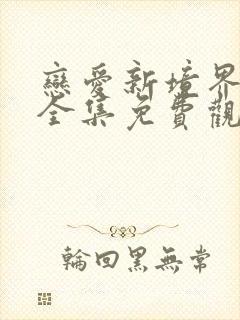 戀愛新境界
全集免費觀
輪回黑無常